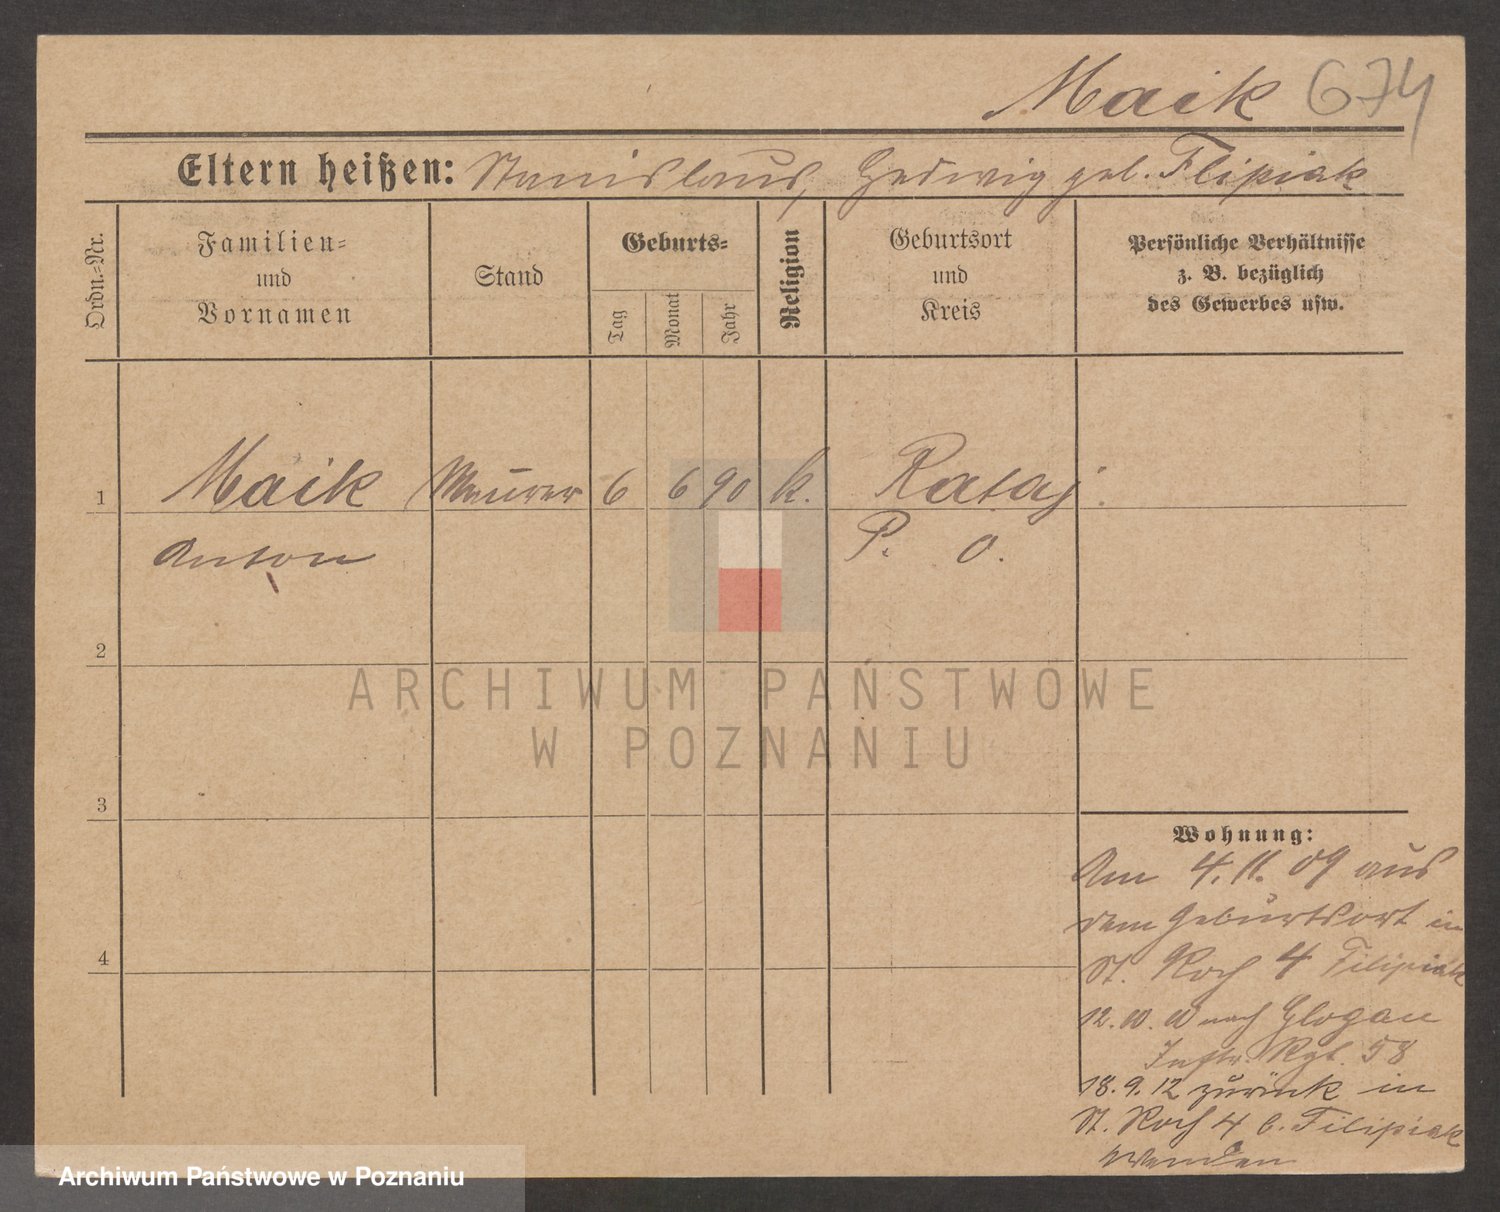 Maik 674
Eltern heißen: Stanislaus, Hedwig geb. Flipiak
Ordn.-Nr.
Familien-
und
Vornamen
Stand
Geburts-
Tag
Monat
Jahr
Religion
Geburtsort
und
Kreis
Persönliche Verhältnisse
z. B. bezüglich
des Gewerbes usw.
1 Maik Maurer 6 6 90 k. Rataj
Anton P. O.
2
3
4
Wohnung:
Am 4.11.09 aus
dem Geburtsort in
St. Roch 4 Filipiak
12. 10. 10 nach Glogau
Inftr. Rgt. 58
18.9.12 zurück in
St. Roch 4 b. Filipiak
wenden
ARCHIWUM PAŃSTWOWE
W POZNANIU
Archiwum Państwowe w Poznaniu